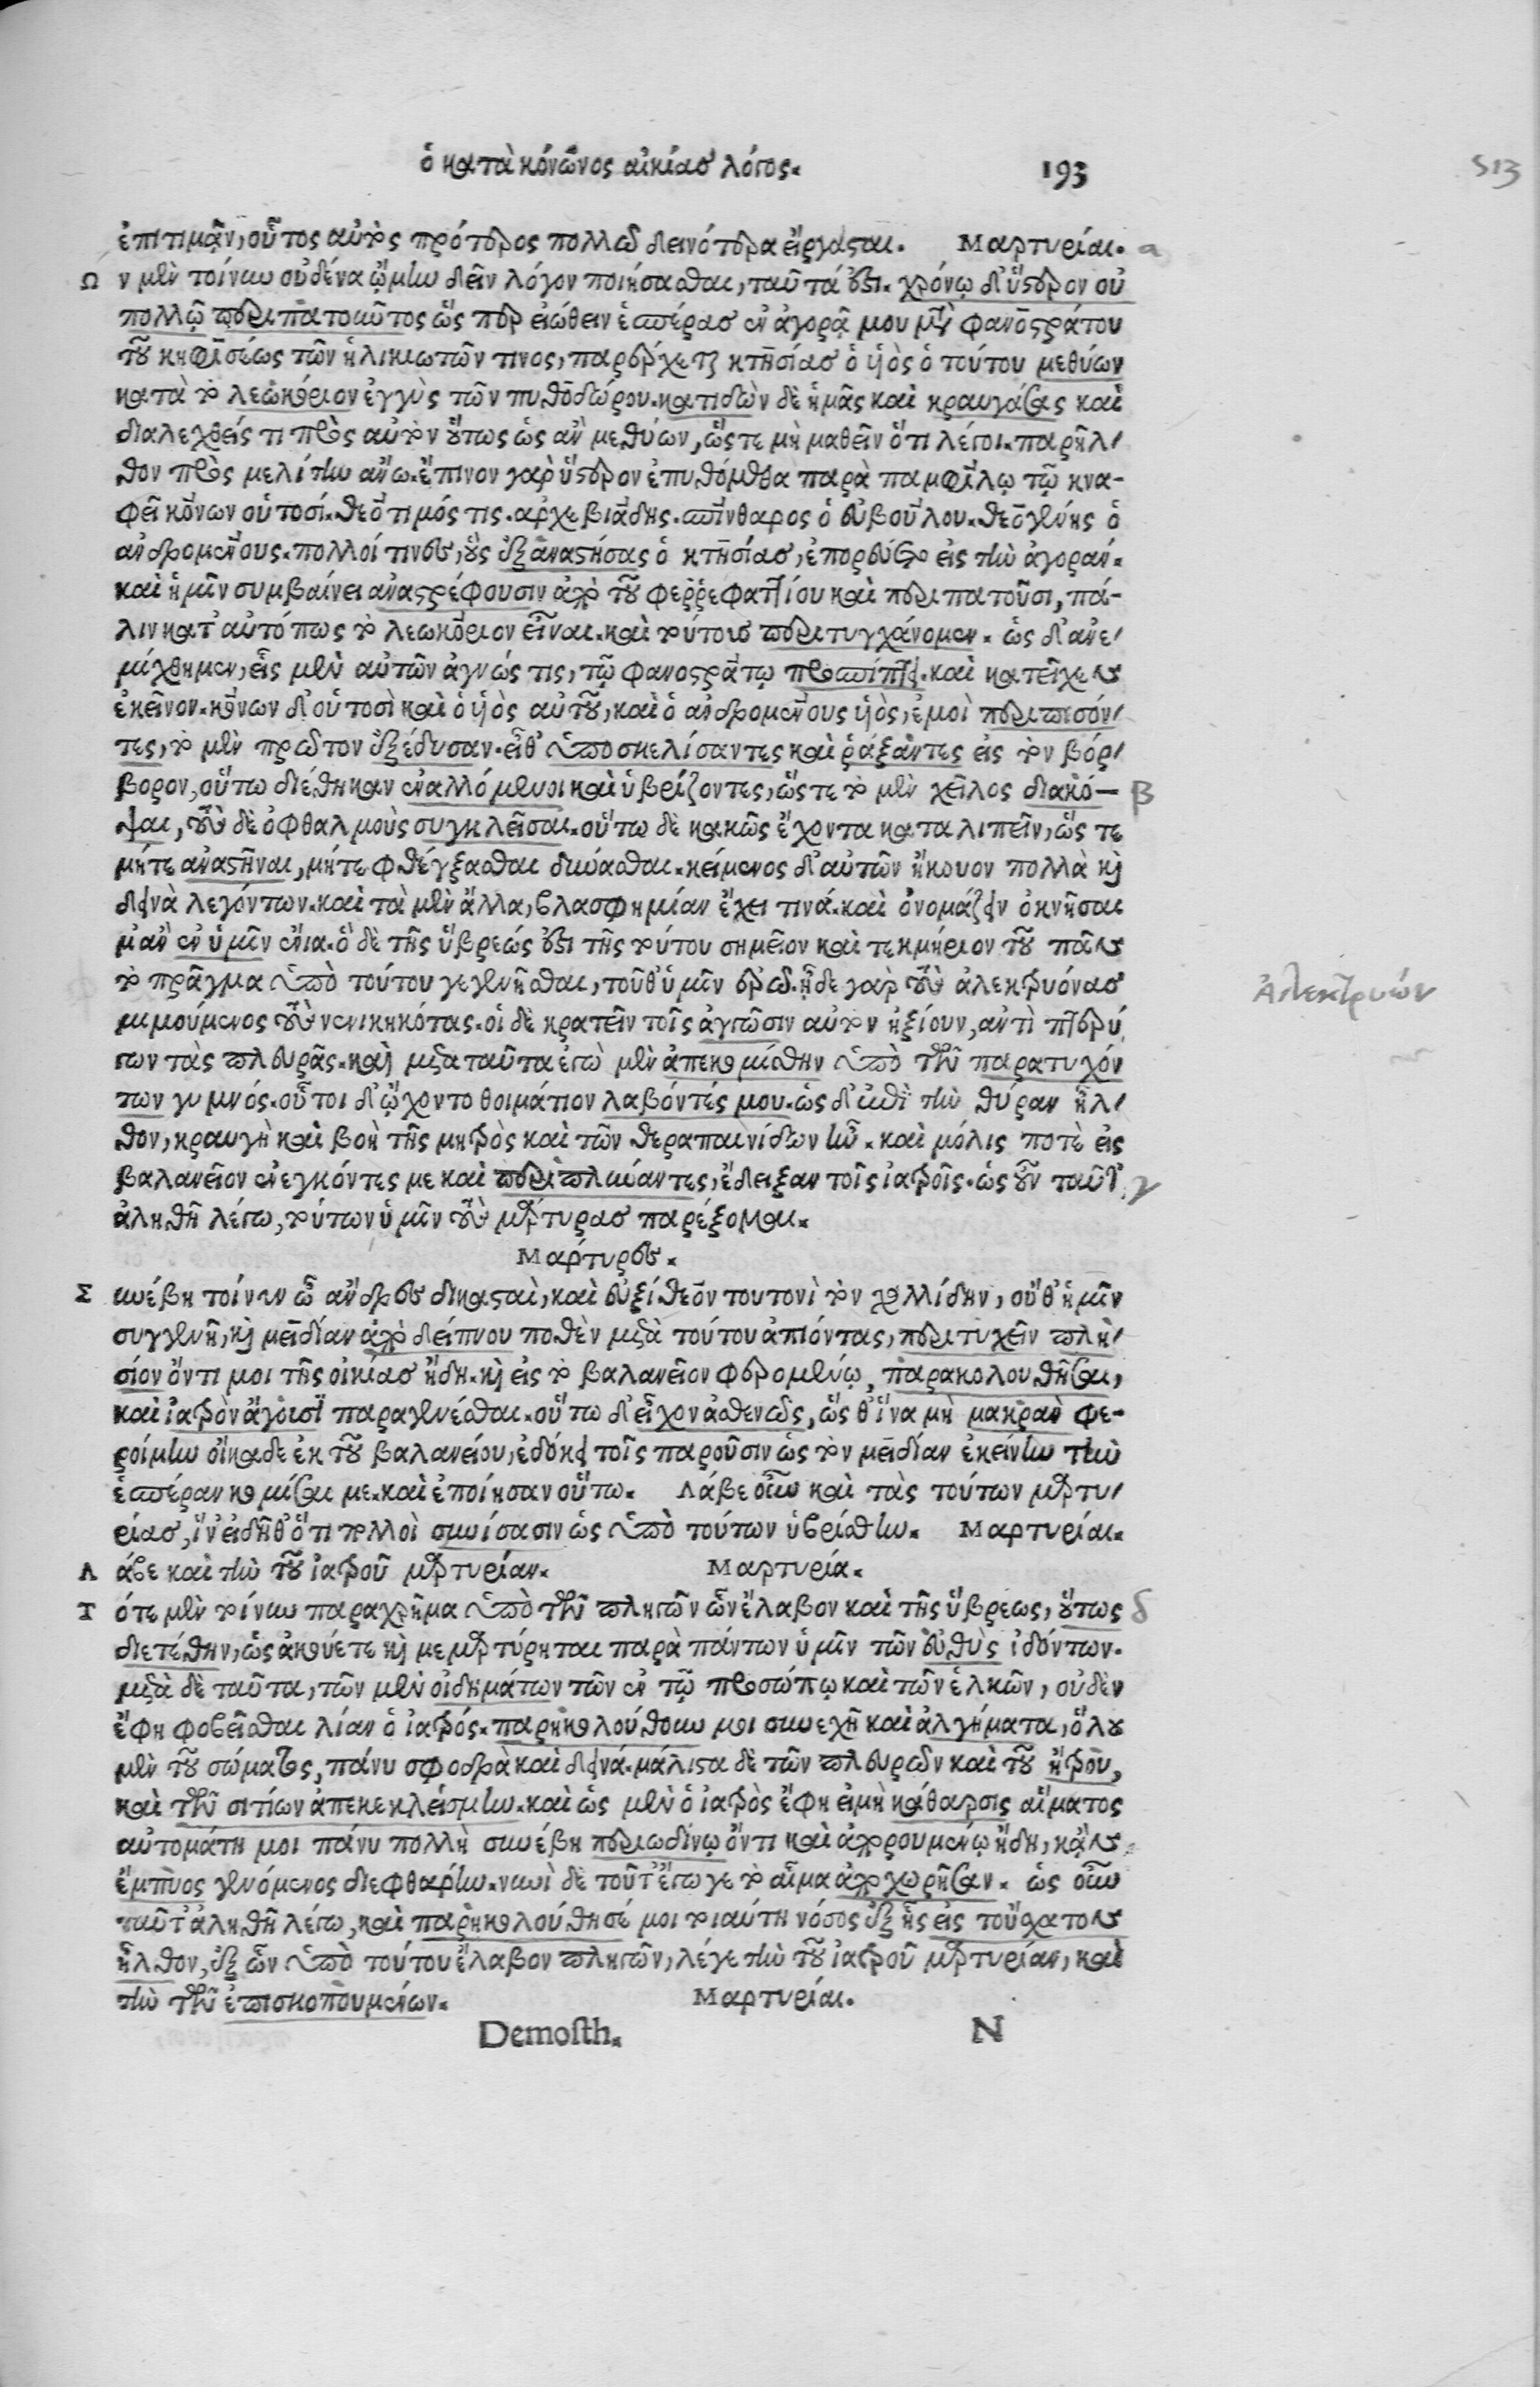 ὁ κατὰ κόνωνος αἰκίας λόγος. 193
513
ἐπιτιμᾶν, οὗτος αὐτὸς πρότερος πολλῷ δεινότερα εἴργασται. Μαρτυρίαι. α
Ων μὲν τοίνυν οὐδένα ᾤμην δεῖν λόγον ποιήσασθαι, ταῦτά ἐστι. χρόνῳ δ' ὕστερον οὐ
πολλῷ περιπατοῦντος ὥς περ εἰώθειν ἑσπέρας ἐν ἀγορᾷ μου μετὰ φανοστράτου
τοῦ κηφισέως τῶν ἡλικιωτῶν τινος, παρέρχεται κτησίας ὁ υἱὸς ὁ τούτου μεθύων
κατὰ τὸ λεωκόριον ἐγγὺς τῶν πυθοδώρου. κατιδὼν δὲ ἡμᾶς καὶ κραυγάσας καὶ
διαλεχθείς τι πρὸς αὑτὸν οὕτως ὡς ἂν μεθύων, ὥστε μὴ μαθεῖν ὅτι λέγοι. παρῆλ/
θον πρὸς μελίτην ἄνω. ἔπινον γὰρ ὕστερον ἐπυθόμεθα παρὰ παμφίλῳ τῷ κνα-
φεῖ κόνων οὑτοσί. θεότιμός τις. ἀρχεβιάδης. σπίνθαρος ὁ εὐβούλου. θεογένης ὁ
ἀνδρομένους. πολλοί τινες, οὓς ἐξαναστήσας ὁ κτησίας, ἐπορεύετο εἰς τὴν ἀγοράν.
καὶ ἡμῖν συμβαίνει ἀναστρέφουσιν ἀπὸ τοῦ φερρεφαττίου καὶ περιπατοῦσι, πά-
λιν κατ' αὐτό πως τὸ λεωκόριον εἶναι. καὶ τούτοις περιτυγχάνομεν. ὡς δ' ἀνε/
μίχθημεν, εἷς μὲν αὐτῶν ἀγνώς τις, τῷ φανοστράτῳ προσπίπτει. καὶ κατεῖχεν
ἐκεῖνον. κόνων δ' οὑτοσὶ καὶ ὁ υἱὸς αὐτοῦ, καὶ ὁ ἀνδρομένους υἱὸς, ἐμοὶ περιπεσόν/
τες, τὸ μὲν πρῶτον ἐξέδυσαν. εἶθ' ὑποσκελίσαντες καὶ ῥάξαντες εἰς τὸν βόρ/
βορον, οὕτω διέθηκαν ἐναλλόμενοι καὶ ὑβρίζοντες, ὥστε τὸ μὲν χεῖλος διακό— β
ψαι, τοὺς δὲ ὀφθαλμοὺς συγκλεῖσαι. οὕτω δὲ κακῶς ἔχοντα καταλιπεῖν, ὥς τε
μήτε ἀναστῆναι, μήτε φθέγξασθαι δύνασθαι. κείμενος δ' αὐτῶν ἤκουον πολλὰ καὶ
δεινὰ λεγόντων. καὶ τὰ μὲν ἄλλα, βλασφημίαν ἔχει τινά. καὶ ὀνομάζειν ὀκνήσαι
μ' ἂν ἐν ὑμῖν ἔνια. ὃ δὲ τῆς ὕβρεώς ἐστι τῆς τούτου σημεῖον καὶ τεκμήριον τοῦ πᾶν
τὸ πρᾶγμα ὑπὸ τούτου γεγενῆσθαι, τοῦθ' ὑμῖν ἐρῶ. ᾖδε γὰρ τοὺς ἀλεκτρυόνας
Ἀλεκτρυών
μιμούμενος τοὺς νενικηκότας. οἱ δὲ κρατεῖν τοῖς ἀγκῶσιν αὐτὸν ἠξίουν, ἀντὶ πτερύ
γων τὰς πλευράς. καὶ μετὰ ταῦτα ἐγὼ μὲν ἀπεκομίσθην ὑπὸ τῶν παρατυχόν
των γυμνός. οὗτοι δ' ᾤχοντο θοιμάτιον λαβόντές μου. ὡς δ' ἐπὶ τὴν θύραν ἦλ/
θον, κραυγὴ καὶ βοὴ τῆς μητρὸς καὶ τῶν θεραπαινίδων ἦν. καὶ μόλις ποτὲ εἰς
βαλανεῖον ἐνεγκόντες με καὶ περιπλύναντες, ἔδειξαν τοῖς ἰατροῖς. ὡς οὖν ταῦτ' γ
ἀληθῆ λέγω, τούτων ὑμῖν τοὺς μάρτυρας παρέξομαι.
Μάρτυρες.
Συνέβη τοίνυν ὦ ἄνδρες δικασταὶ, καὶ εὐξίθεόν τουτονὶ τὸν χολλίδην, οὔθ' ἡμῖν
συγγενῆ, καὶ μειδίαν ἀπὸ δείπνου ποθὲν μετὰ τούτου ἀπιόντας, περιτυχεῖν πλη/
σίον ὄντι μοι τῆς οἰκίας ἤδη. καὶ εἰς τὸ βαλανεῖον φερομένῳ, παρακολουθῆσαι,
καὶ ἰατρὸν ἄγουσι παραγενέσθαι. οὕτω δ' εἶχον ἀσθενῶς, ὥς θ' ἵνα μὴ μακρὰν φε-
ροίμην οἴκαδε ἐκ τοῦ βαλανείου, ἐδόκει τοῖς παροῦσιν ὡς τὸν μειδίαν ἐκείνην τὴν
ἑσπέραν κομίσαι με. καὶ ἐποίησαν οὕτω. Λάβε οὖν καὶ τὰς τούτων μαρτυ/
ρίας, ἵν' εἰδῆθ' ὅτι πολλοὶ συνίσασιν ὡς ὑπὸ τούτων ὑβρίσθην. Μαρτυρίαι.
Λάβε καὶ τὴν τοῦ ἰατροῦ μαρτυρίαν. Μαρτυρία.
Τότε μὲν τοίνυν παραχρῆμα ὑπὸ τῶν πληγῶν ὧν ἔλαβον καὶ τῆς ὕβρεως, οὕτως δ
διετέθην, ὡς ἀκούετε καὶ μεμαρτύρηται παρὰ πάντων ὑμῖν τῶν εὐθὺς ἰδόντων.
μετὰ δὲ ταῦτα, τῶν μὲν οἰδημάτων τῶν ἐν τῷ προσώπῳ καὶ τῶν ἑλκῶν, οὐδὲν
ἔφη φοβεῖσθαι λίαν ὁ ἰατρός. παρηκολούθουν μοι συνεχῆ καὶ ἀλγήματα, ὅλου
μὲν τοῦ σώματος, πάνυ σφοδρὰ καὶ δεινά. μάλιστα δὲ τῶν πλευρῶν καὶ τοῦ ἤτρου,
καὶ τῶν σιτίων ἀπεκεκλείσμην. καὶ ὡς μὲν ὁ ἰατρὸς ἔφη εἰ μὴ κάθαρσις αἵματος
αὐτομάτη μοι πάνυ πολλὴ συνέβη περιωδίνῳ ὄντι καὶ ἀπορουμένῳ ἤδη, κἂν
ἔμπυος γενόμενος διεφθάρην. νυνὶ δὲ τοῦτ' ἔγωγε τὸ αἷμα ἀποχωρῆσαν. ὡς οὖν
ταῦτ' ἀληθῆ λέγω, καὶ παρηκολούθησέ μοι τοιαύτη νόσος ἐξ ἧς εἰς τοὔσχατον
ἦλθον, ἐξ ὧν ὑπὸ τούτου ἔλαβον πληγῶν, λέγε τὴν τοῦ ἰατροῦ μαρτυρίαν, καὶ
τὴν τῶν ἐπισκοπουμένων. Μαρτυρίαι.
Demoſth. N